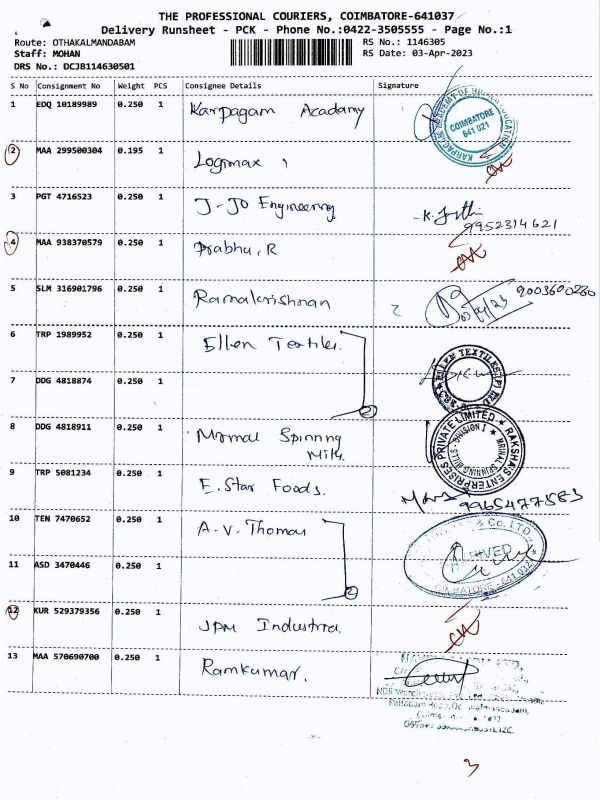 THE PROFESSIONAL COURIERS, COIMBATORE-641037
Delivery Runsheet - PCK - Phone No.:0422-3505555 - Page No.:1
Route: OTHAKALMANDABAM RS No.: 1146305
Staff: MOHAN RS Date: 03-Apr-2023
DRS No.: DCJB114630501
S No Consignment No Weight PCS Consignee Details Signature
1 EDQ 10189989 0.250 1 Karpagam Acadamy
KARPAGAM ACADEMY OF HIGHER EDUCATION
COIMBATORE
641 021
2 MAA 299500304 0.195 1 Logimax
3 PGT 4716523 0.250 1 J-JO Engineering
9952314621
4 MAA 938370579 0.250 1 Prabhu, R
5 SLM 316901796 0.250 1 Ramakrishnan
9003600230
6 TRP 1989952 0.250 1 Ellen Textiles.
ELLEN TEXTILES (P)
7 DDG 4818874 0.250 1
2
8 DDG 4818911 0.250 1 Mromal Spinning
Mills.
RAKSHA'S ENTERPRISES PRIVATE LIMITED
MRUNAL SPINNING MILLS - DIVISION I
9 TRP 5081234 0.250 1 E. Star Foods.
9965477583
10 TEN 7470652 0.250 1 A.V. Thomas
& Co. LTD.
COIMBATORE - 641 032
11 ASD 3470446 0.250 1
2
12 KUR 529379356 0.250 1 JPM Industria.
13 MAA 570690700 0.250 1 Ramkumar.
3